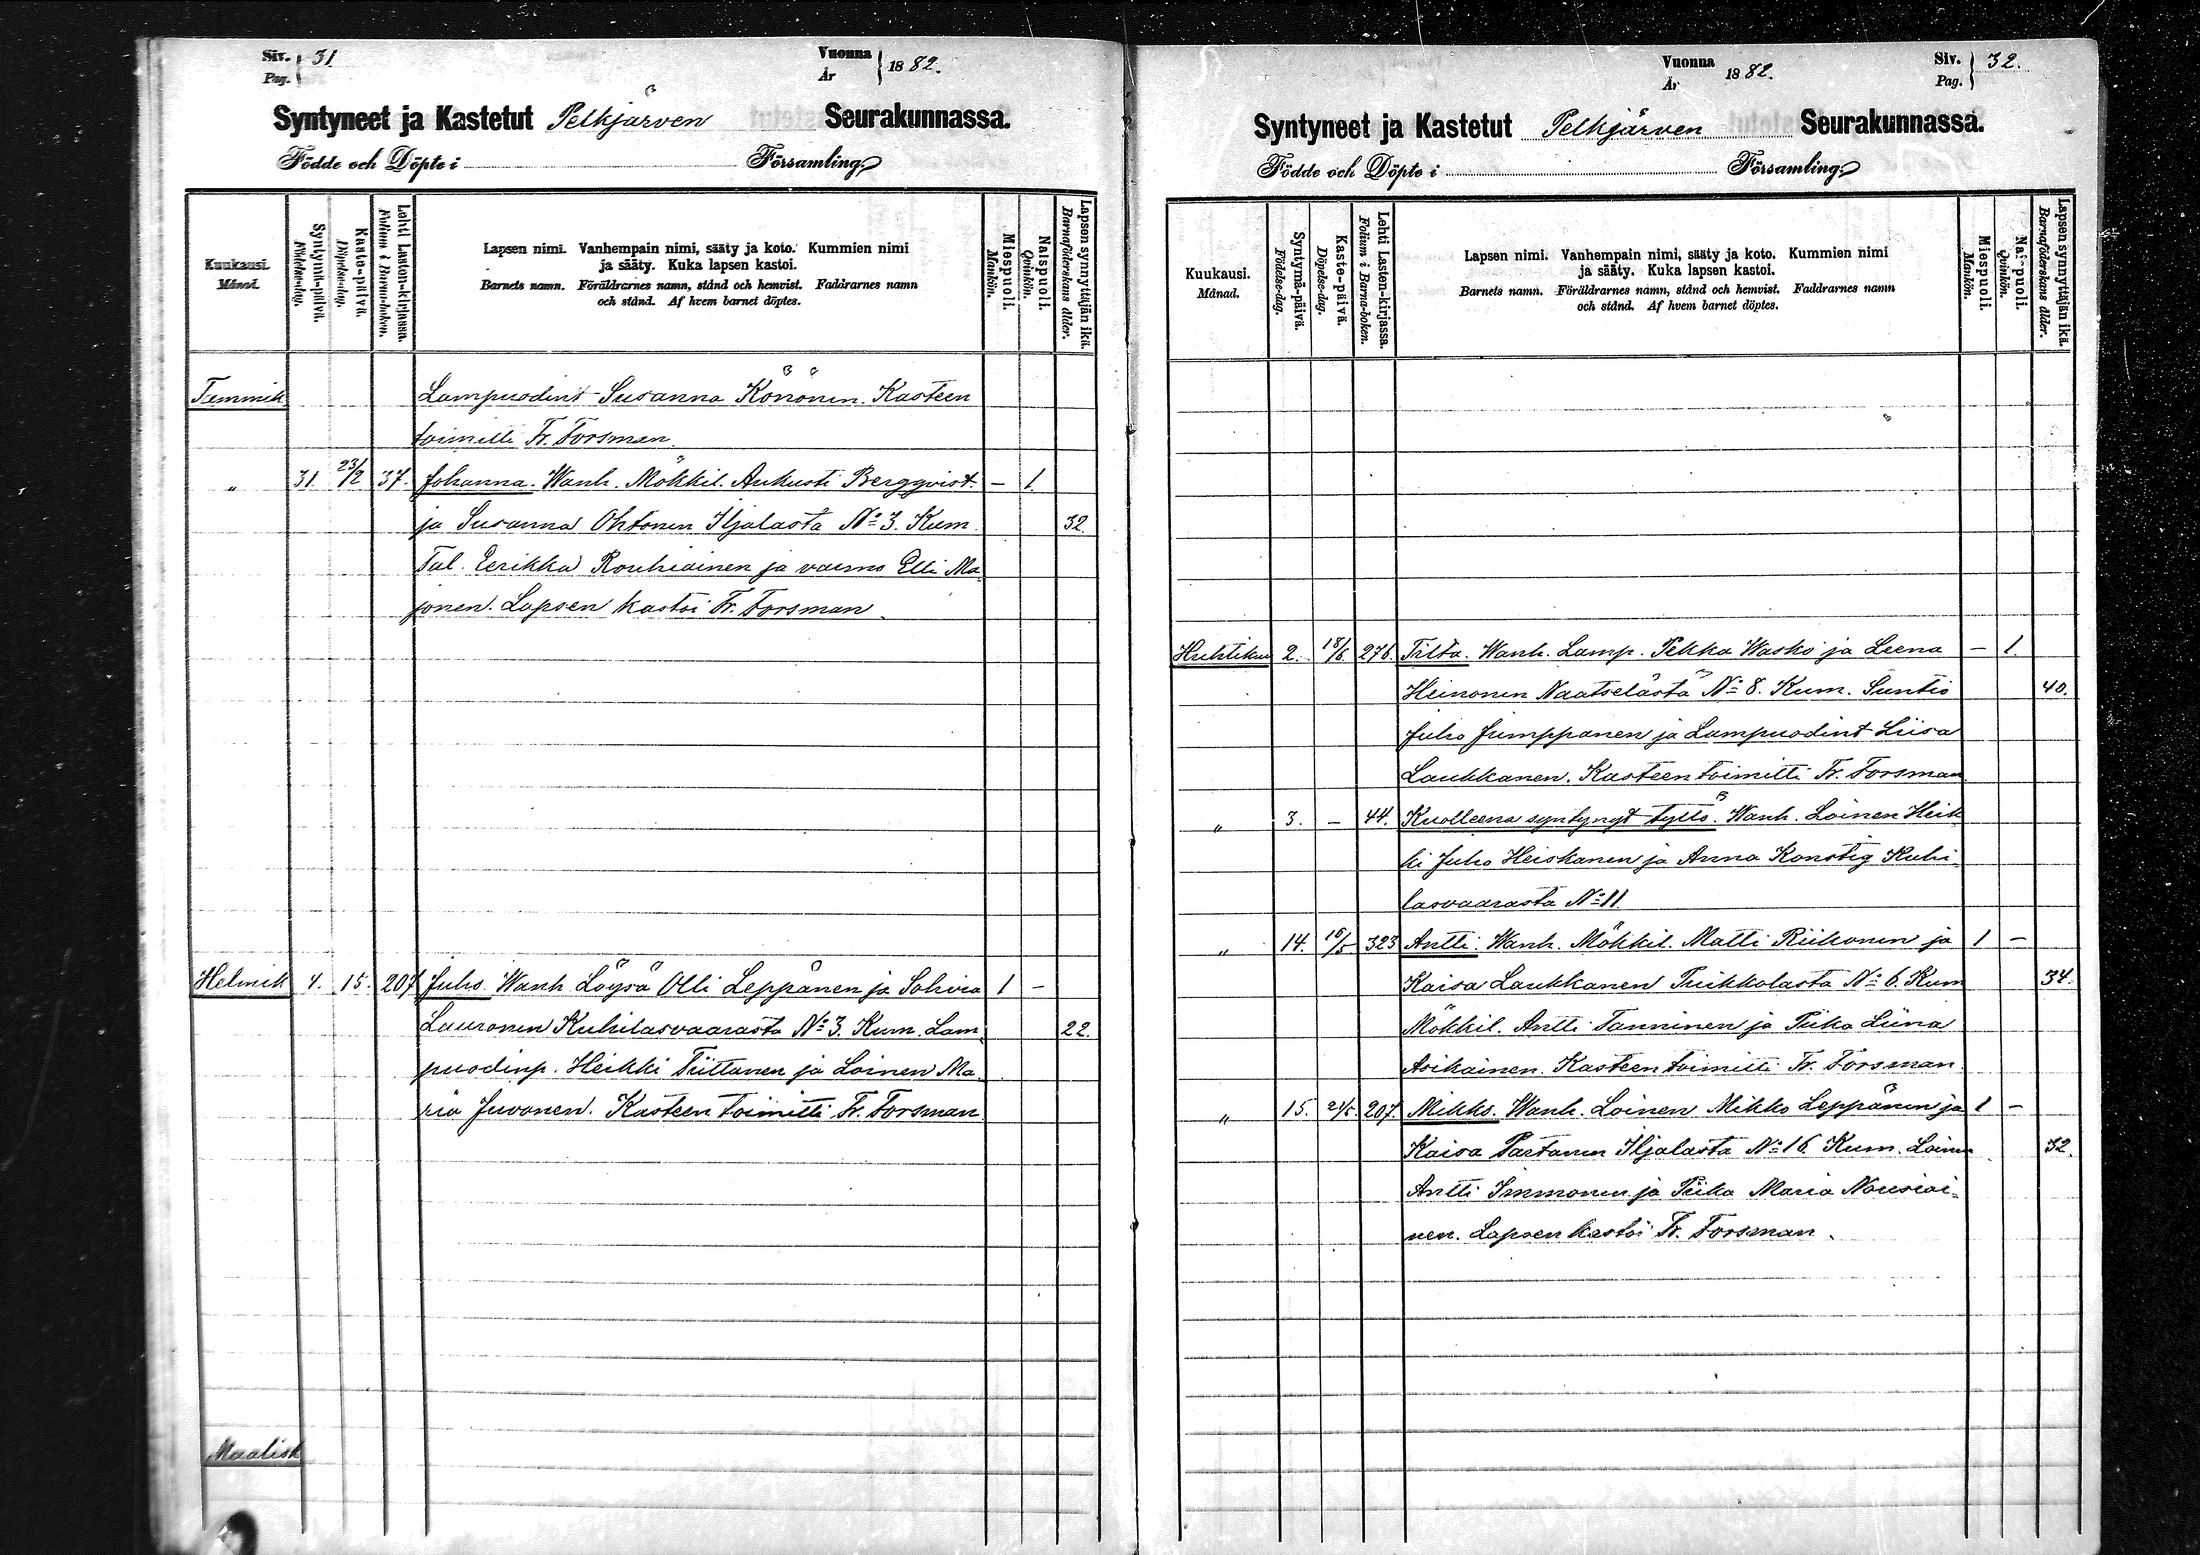 Siv. 31
Pag.
Vuonna
År 1882.
Syntyneet ja Kastetut Pelkjärven Seurakunnassa.
Födde och Döpte i Församling.
Kuukausi.
Månad.
Syntymä-päivä.
Födelse-dag.
Kaste-päivä.
Döpelse-dag.
Lehti Lasten-kirjassa.
Folium i Barna-boken.
Lapsen nimi. Vanhempain nimi, sääty ja koto. Kummien nimi
ja sääty. Kuka lapsen kastoi.
Barnets namn. Föräldrarnes namn, stånd och hemvist. Faddrarnes namn
och stånd. Af hvem barnet döptes.
Miespuoli.
Mankön.
Naispuoli.
Qvinkön.
Lapsen synnyttäjän ikä.
Barnaföderskans ålder.
Tammik Lampuodint Susanna Könönen. Kasteen
toimitti Fr. Forsman.
" 31. 23/2 37. Johanna. Wanh. Mökkil. Aukusti Bergqvist. — 1.
ja Susanna Ohtonen Iljalasta No 3. Kum. 32.
Tal. Eerikka Rouhiainen ja vaimo Elli Ma-
jonen. Lapsen kastoi Fr. Forsman.
Helmik 4. 15. 207 Juho. Wanh Löysä Olli Leppänen ja Sohvia 1 —
Lauronen Kuhilasvaarasta No 3. Kum. Lam- 22.
puodinp. Heikki Tiittanen ja Loinen Ma-
ria Juvonen. Kasteen toimitti Fr. Forsman.
Maalisk
Vuonna
År 1882.
Siv. 32.
Pag.
Syntyneet ja Kastetut Pelkjärven Seurakunnassa.
Födde och Döpte i Församling.
Kuukausi.
Månad.
Syntymä-päivä.
Födelse-dag.
Kaste-päivä.
Döpelse-dag.
Lehti Lasten-kirjassa.
Folium i Barna-boken.
Lapsen nimi. Vanhempain nimi, sääty ja koto. Kummien nimi
ja sääty. Kuka lapsen kastoi.
Barnets namn. Föräldrarnes namn, stånd och hemvist. Faddrarnes namn
och stånd. Af hvem barnet döptes.
Miespuoli.
Mankön.
Naispuoli.
Qvinkön.
Lapsen synnyttäjän ikä.
Barnaföderskans ålder.
Huhtikuu 2. 18/6. 276. Tilta. Wanh. Lamp. Pekka Wasko ja Leena — 1.
Heinonen Naatselästä No 8. Kum. Suntio 40.
Juho Jumppanen ja Lampuodint Liisa
Laukkanen. Kasteen toimitti Fr. Forsman
" 3. — 44. Kuolleena syntynyt tyttö. Wanh. Loinen Heik
ki Juho Heiskanen ja Anna Konstig Kuhi-
lasvaarasta No 11.
" 14. 16/5. 323 Antti. Wanh. Mökkil. Matti Riikonen ja 1 —
Kaisa Laukkanen Puikkolasta No 6. Kum 34.
Mökkil. Antti Tanninen ja Piika Liina
Asikainen. Kasteen toimitti Fr. Forsman.
" 15. 21/5. 207. Mikko. Wanh. Loinen Mikko Leppänen ja 1 —
Kaisa Partanen Iljalasta No 16 Kum. Loinen 32.
Antti Immonen ja Piika Maria Nousiai-
nen. Lapsen kastoi Fr. Forsman.